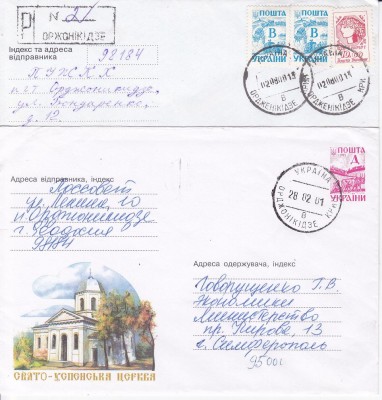 Р
N 24
ОРДЖОНІКІДЗЕ
Індекс та адреса
відправника
98184
ПУЖКХ
пгт Орджоникидзе
ул. Бондаренко,
д. 12.
ПОШТА
В
УКРАЇНИ
ПОШТА
В
УКРАЇНИ
ОРДЖОНІКІДЗЕ КРИ.
В
ОРДЖОНІКІДЗЕ КРИ.
В
Адреса відправника, індекс
Поссовет
ул. Ленина, 10
п. Орджоникидзе
г. Феодосия
98184
ПОШТА
Д
УКРАЇНИ
УКРАЇНА
28 02 01
ОРДЖОНІКІДЗЕ КРИ.
В
Адреса одержувача, індекс
Говорущенко Г. В.
Экономики
Министерство
пр. Кирова, 13
г. Симферополь
95000
СВЯТО-УСПЕНСЬКА ЦЕРКВА